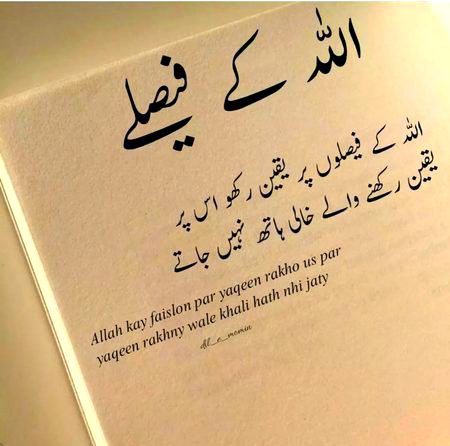 اللہ کے فیصلے
اللہ کے فیصلوں پر یقین رکھو اس پر
یقین رکھنے والے خالی ہاتھ نہیں جاتے
Allah kay faislon par yaqeen rakho us par
yaqeen rakhny wale khali hath nhi jaty
dil_e_momin